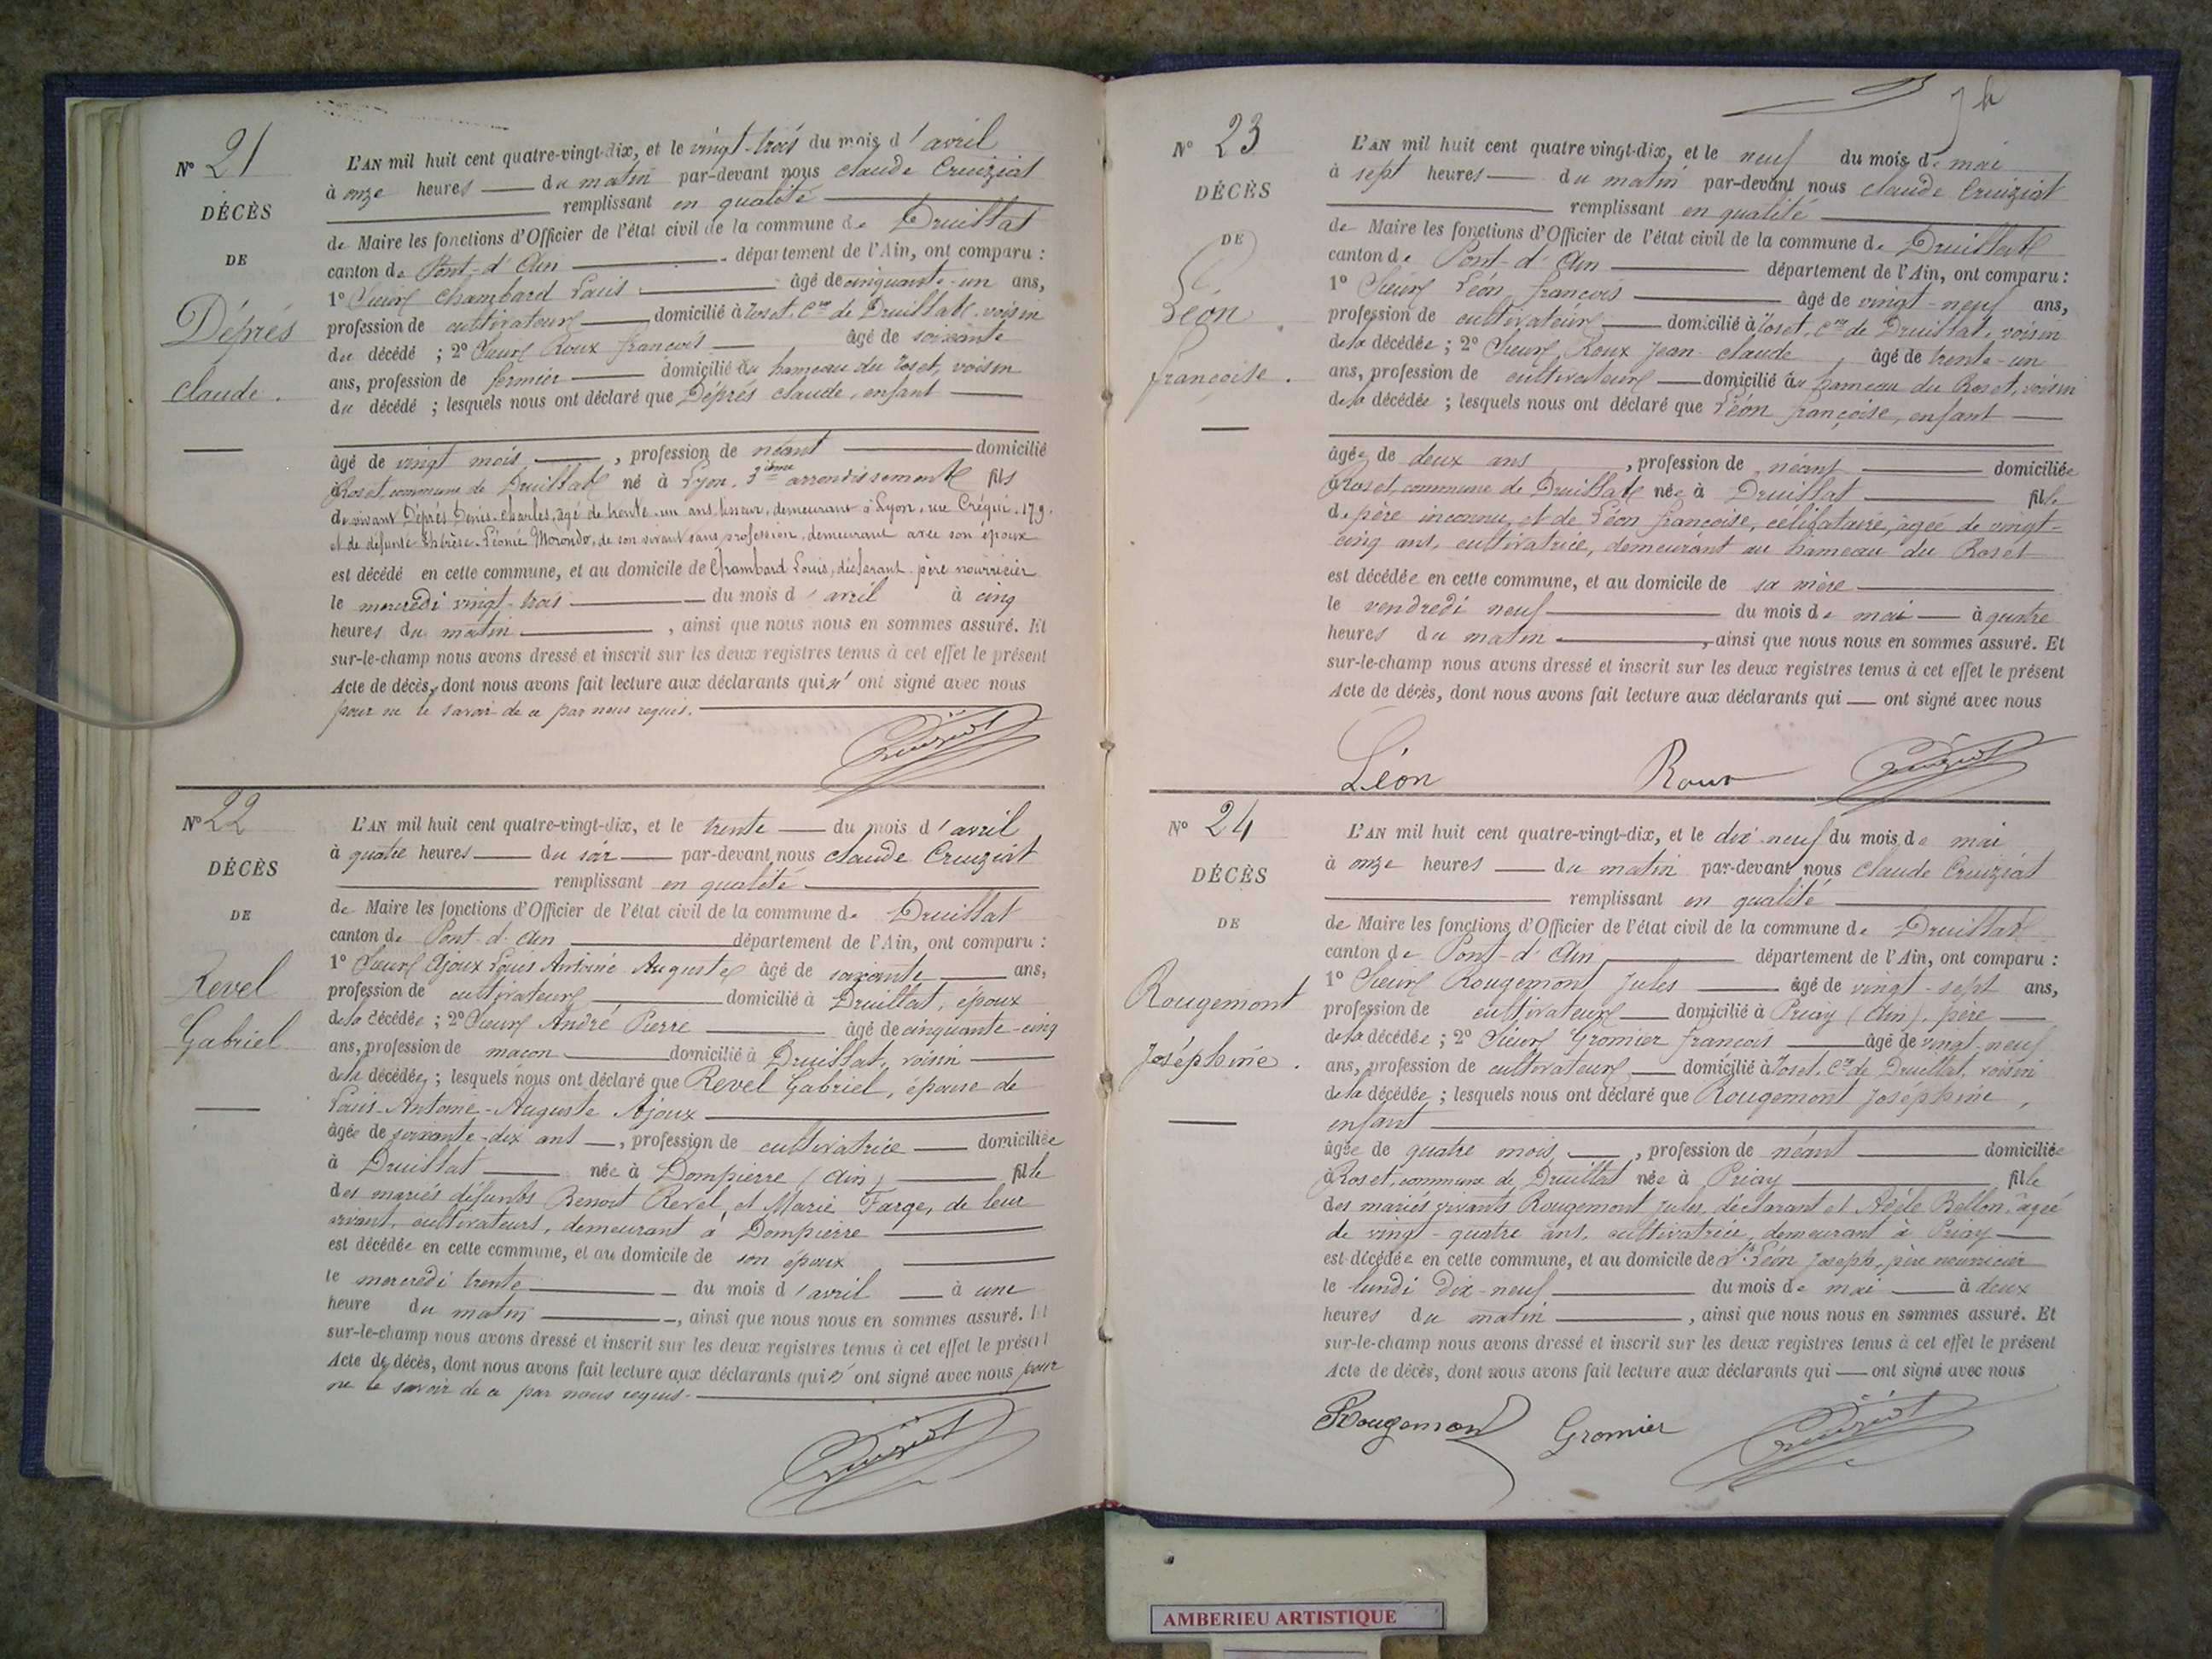 N° 21
DÉCÈS
DE
Déprés
claude.
L'AN mil huit cent quatre-vingt-dix, et le vingt-trois du mois d'avril
à onze heures du matin par-devant nous claude Cruiziat
remplissant en qualité
de Maire les fonctions d'Officier de l'état civil de la commune de Druillat
canton de Pont-d'Ain département de l'Ain, ont comparu :
1° Sieur Chambard Louis âgé de cinquante-un ans,
profession de cultivateur domicilié à roset, Cne de Druillat, voisin
du décédé ; 2° Sieur Roux francois âgé de soixante
ans, profession de fermier domicilié au hameau du roset, voisin
du décédé ; lesquels nous ont déclaré que Déprés claude, enfant
âgé de vingt mois, profession de néant domicilié
à Roset, commune de Druillat né à Lyon, 3ième arrondissement fils
de vivant Déprés Denis-charles, âgé de trente-un ans, demeurant à Lyon, rue Créqui, 179.
et de défunte Thérèse-Léonie Morondo, de son vivant sans profession, demeurant avec son époux
est décédé en cette commune, et au domicile de Chambard Louis, déclarant, père nourricier
le mercredi vingt-trois du mois d'avril à cinq
heures du matin, ainsi que nous nous en sommes assuré. Et
sur-le-champ nous avons dressé et inscrit sur les deux registres tenus à cet effet le présent
Acte de décès, dont nous avons fait lecture aux déclarants qui n'ont signé avec nous
pour ne le savoir de ce par nous requis.
Cruiziat
N° 22
DÉCÈS
DE
Revel
Gabriel
L'AN mil huit cent quatre-vingt-dix, et le trente du mois d'avril
à quatre heures du soir par-devant nous claude Cruiziat
remplissant en qualité
de Maire les fonctions d'Officier de l'état civil de la commune de Druillat
canton de Pont-d'Ain département de l'Ain, ont comparu :
1° Sieur Ajoux Louis Antoine Auguste âgé de soixante ans,
profession de cultivateur domicilié à Druillat, époux
de la décédée ; 2° Sieur André Pierre âgé de cinquante-cinq
ans, profession de maçon domicilié à Druillat, voisin
de la décédée ; lesquels nous ont déclaré que Revel Gabriel, épouse de
Louis-Antoine-Auguste Ajoux
âgée de soixante-dix ans, profession de cultivatrice domiciliée
à Druillat née à Dompierre (Ain) fille
des mariés défunts Benoit Revel et Marie Farge, de leur
vivant, cultivateurs, demeurant à Dompierre
est décédée en cette commune, et au domicile de son époux
le mercredi trente du mois d'avril à une
heure du matin, ainsi que nous nous en sommes assuré. Et
sur-le-champ nous avons dressé et inscrit sur les deux registres tenus à cet effet le présent
Acte de décès, dont nous avons fait lecture aux déclarants qui n'ont signé avec nous pour
ne le savoir de ce par nous requis.
Cruiziat
N° 23
DÉCÈS
DE
Léon
françoise.
L'AN mil huit cent quatre vingt-dix, et le neuf du mois de mai
à sept heures du matin par-devant nous claude Cruiziat
remplissant en qualité
de Maire les fonctions d'Officier de l'état civil de la commune de Druillat
canton de Pont-d'Ain département de l'Ain, ont comparu :
1° Sieur Léon francois âgé de vingt-neuf ans,
profession de cultivateur domicilié à roset, Cne de Druillat, voisin
de la décédée ; 2° Sieur Roux Jean claude, âgé de trente-un
ans, profession de cultivateur domicilié au hameau du Roset, voisin
de la décédée ; lesquels nous ont déclaré que Léon françoise, enfant
âgée de deux ans, profession de néant domiciliée
à Roset, commune de Druillat née à Druillat fille
de père inconnu, et de Léon françoise, célibataire, âgée de vingt-
cinq ans, cultivatrice, demeurant au hameau du Roset
est décédée en cette commune, et au domicile de sa mère
le vendredi neuf du mois de mai à quatre
heures du matin, ainsi que nous nous en sommes assuré. Et
sur-le-champ nous avons dressé et inscrit sur les deux registres tenus à cet effet le présent
Acte de décès, dont nous avons fait lecture aux déclarants qui ont signé avec nous
Léon Roux Cruiziat
N° 24
DÉCÈS
DE
Rougemont
Joséphine.
L'AN mil huit cent quatre-vingt-dix, et le dix neuf du mois de mai
à onze heures du matin par-devant nous Claude Cruiziat
remplissant en qualité
de Maire les fonctions d'Officier de l'état civil de la commune de Druillat
canton de Pont-d'Ain département de l'Ain, ont comparu :
1° Sieur Rougemont Jules âgé de vingt-sept ans,
profession de cultivateur domicilié à Priay (Ain), père
de la décédée ; 2° Sieur Gromier francois âgé de vingt-neuf
ans, profession de cultivateur domicilié à roset, Cne de Druillat, voisin
de la décédée ; lesquels nous ont déclaré que Rougemont Joséphine,
enfant
âgée de quatre mois, profession de néant domiciliée
à Roset, commune de Druillat née à Priay fille
des mariés vivants Rougemont Jules, déclarant et Adèle Bellon, âgée
de vingt-quatre ans, cultivatrice, demeurant à Priay
est décédée en cette commune, et au domicile de Sr Léon Joseph, père nourricier
le lundi dix-neuf du mois de mai à deux
heures du matin, ainsi que nous nous en sommes assuré. Et
sur-le-champ nous avons dressé et inscrit sur les deux registres tenus à cet effet le présent
Acte de décès, dont nous avons fait lecture aux déclarants qui ont signé avec nous
Rougemont Gromier Cruiziat
AMBERIEU ARTISTIQUE